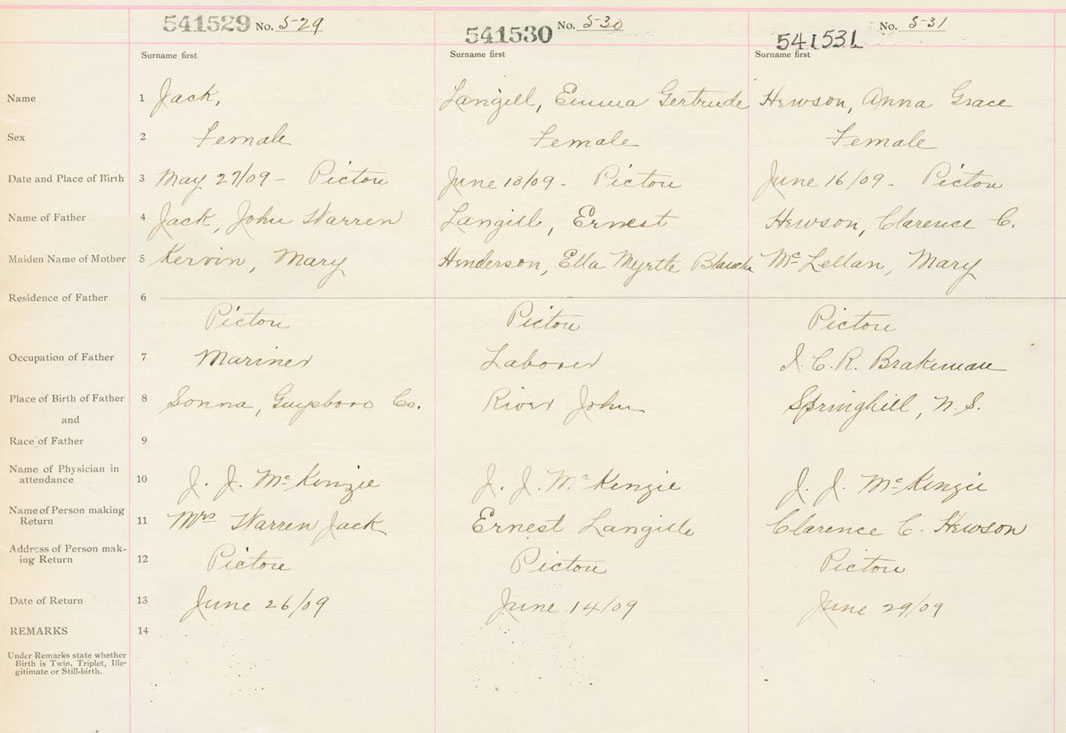 541529 No. S-29 541530 No. S-30 541531 No. S-31
Surname first Surname first Surname first
Name 1 Jack, Langill, Emma Gertrude Hewson, Anna Grace
Sex 2 Female Female Female
Date and Place of Birth 3 May 27/09 - Pictou June 13/09 - Pictou June 16/09 - Pictou
Name of Father 4 Jack, John Warren Langill, Ernest Hewson, Clarence C.
Maiden Name of Mother 5 Kervin, Mary Henderson, Ella Myrtle Blanche McLellan, Mary
Residence of Father 6
Pictou Pictou Pictou
Occupation of Father 7 Mariner Laborer I.C.R. Brakeman
Place of Birth of Father 8 Guysboro Co. River John Springhill, N.S.
and
Race of Father 9
Name of Physician in
attendance 10 J. J. McKenzie J. J. McKenzie J. J. McKenzie
Name of Person making
Return 11 Mrs Warren Jack Ernest Langille Clarence C. Hewson
Address of Person mak-
ing Return 12 Pictou Pictou Pictou
Date of Return 13 June 26/09 June 14/09 June 29/09
REMARKS 14
Under Remarks state whether
Birth is Twin, Triplet, Ille-
gitimate or Still-birth.